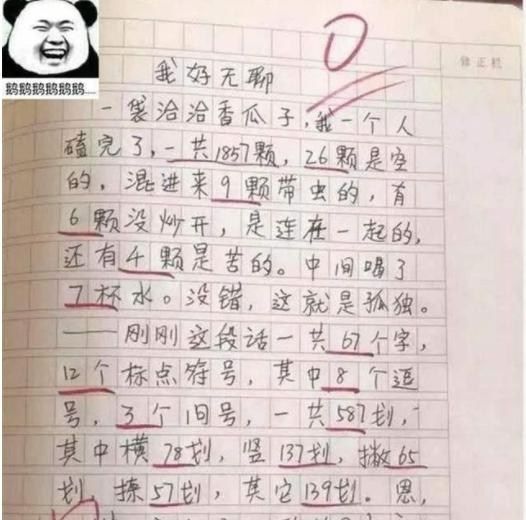 0
修正栏
鹅鹅鹅鹅鹅鹅......
我好无聊
一袋洽洽香瓜子，我一个人
磕完了，一共1857颗，26颗是空
的，混进来9颗带虫的，有
6颗没炒开，是连在一起的，
还有4颗是苦的。中间喝了
7杯水。没错，这就是孤独。
——刚刚这段话一共67个字，
12个标点符号，其中8个逗
号，3个旧号，一共587划，
其中横78划，竖137划，撇65
划，捺57划，其它139划。恩，